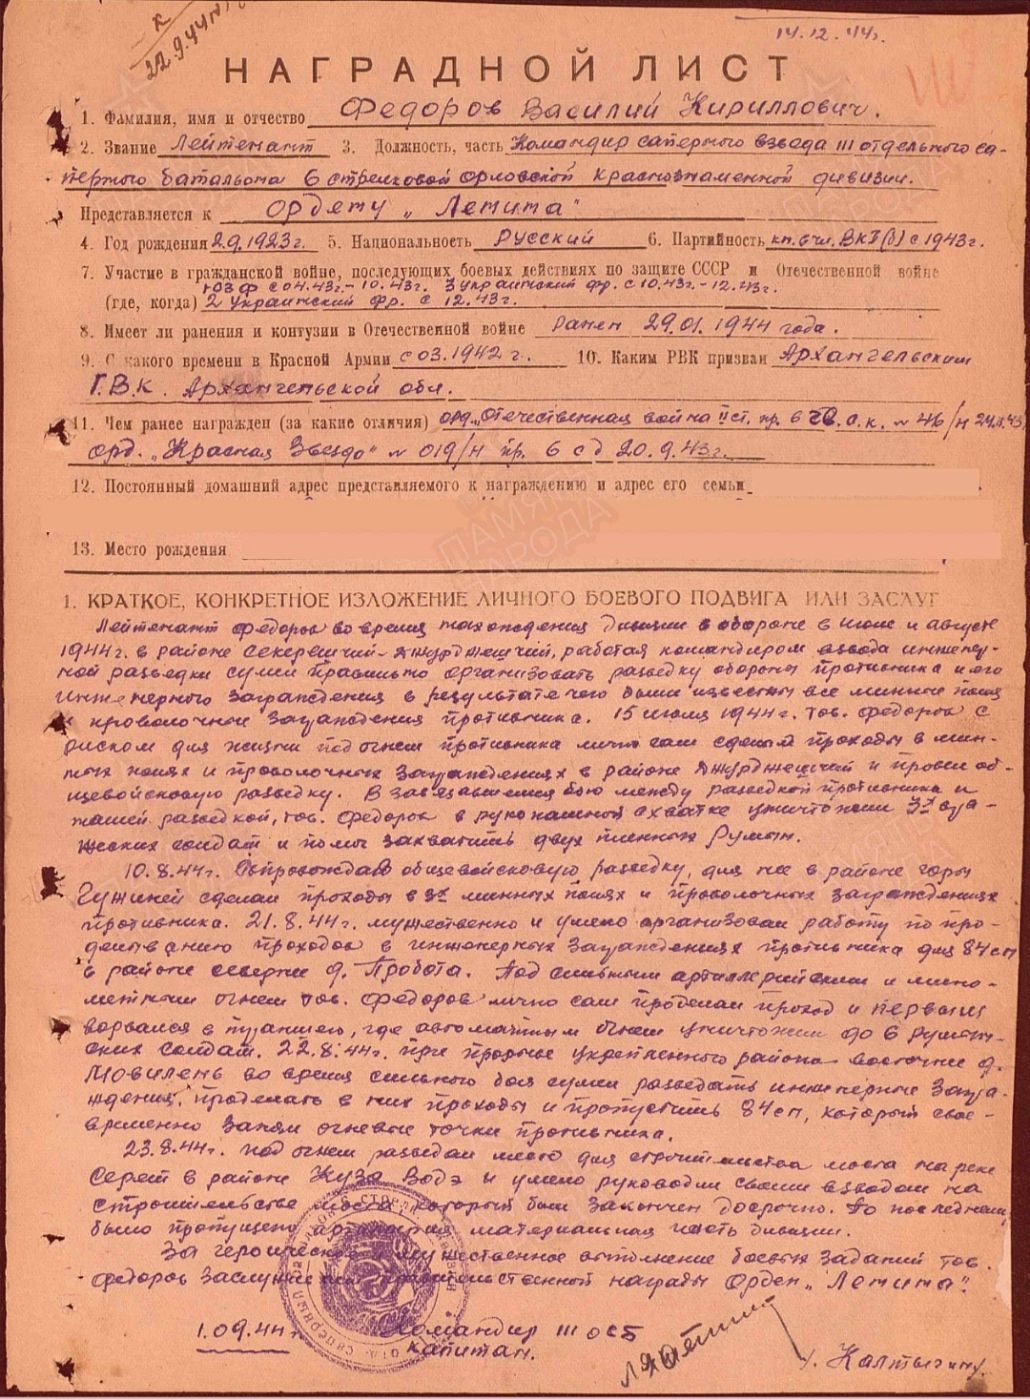 22.9.44
14.12.44г.
НАГРАДНОЙ ЛИСТ
1. Фамилия, имя и отчество Федоров Василий Кириллович.
2. Звание Лейтенант 3. Должность, часть Командир саперного взвода 111 отдельного са-
перного батальона 6 стрелковой Орловской Краснознаменной дивизии.
Представляется к ордену „Ленина"
4. Год рождения 2.9.1923г. 5. Национальность Русский 6. Партийность чл. ВКП(б) с 1943г.
7. Участие в гражданской войне, последующих боевых действиях по защите СССР и Отечественной войне
ЮЗФ с 04.43г.-10.43г. 3 Украинский фр. с 10.43г.-12.43г.
(где, когда) 2 Украинский фр. с 12.43г.
8. Имеет ли ранения и контузии в Отечественной войне Ранен 29.01.1944 года.
9. С какого времени в Красной Армии с 03.1942 г. 10. Каким РВК призван Архангельским
Г.В.К. Архангельской обл.
11. Чем ранее награжден (за какие отличия) орд. „Отечественная война II ст. пр. 6 с.к. № 46/н
орд. „Красная Звезда" № 019/н пр. 6 сд 20.9.43г.
12. Постоянный домашний адрес представляемого к награждению и адрес его семьи
13. Место рождения
ПАМЯТЬ НАРОДА
1. КРАТКОЕ, КОНКРЕТНОЕ ИЗЛОЖЕНИЕ ЛИЧНОГО БОЕВОГО ПОДВИГА ИЛИ ЗАСЛУГ
Лейтенант Федоров во время нахождения дивизии в обороне в июле и августе
1944г. в районе Секерешчий-Джурджешчий, работая командиром взвода инженер-
ной разведки сумел правильно организовать разведку обороны противника и его
инженерного заграждения в результате чего были известны все минные поля
и проволочные заграждения противника. 15 июля 1944г. тов. Федоров с
риском для жизни под огнем противника лично сам сделал проходы в мин-
ных полях и проволочных заграждениях в районе Джурджешчий и провел об-
щевойсковую разведку. В завязавшемся бою между разведкой противника и
нашей разведкой, тов. Федоров в рукопашной схватке уничтожил 3х вра-
жеских солдат и помог захватить двух пленных Румын.
10.8.44г. Сопровождая общевойсковую разведку, для нее в районе горы
сделал проходы в 3х минных полях и проволочных заграждениях
противника. 21.8.44г. мужественно и умело организовал работу по про-
делыванию проходов в инженерных заграждениях противника для 84 сп
в районе севернее д. Пробота. Под сильным артиллерийским и мино-
метным огнем тов. Федоров лично сам проделал проход и первым
ворвался в траншею, где автоматным огнем уничтожил до 6 румын-
ских солдат. 22.8.44г. при прорыве укрепленного района восточнее д.
Мовилень во время сильного боя сумел разведать инженерные загра-
ждения, проделать в них проходы и пропустить 84 сп, который свое-
временно занял огневые точки противника.
23.8.44г. под огнем разведал место для строительства моста на реке
Серет в районе Куза Водэ и умело руководил своим взводом на
строительстве моста который был закончен досрочно. По последнему
было пропущено артиллерия материальная часть дивизии.
За героическое и мужественное выполнение боевых заданий тов.
Федоров заслуживает правительственной награды Орден „Ленина".
1.09.44г. Командир 111 ОСБ
капитан.